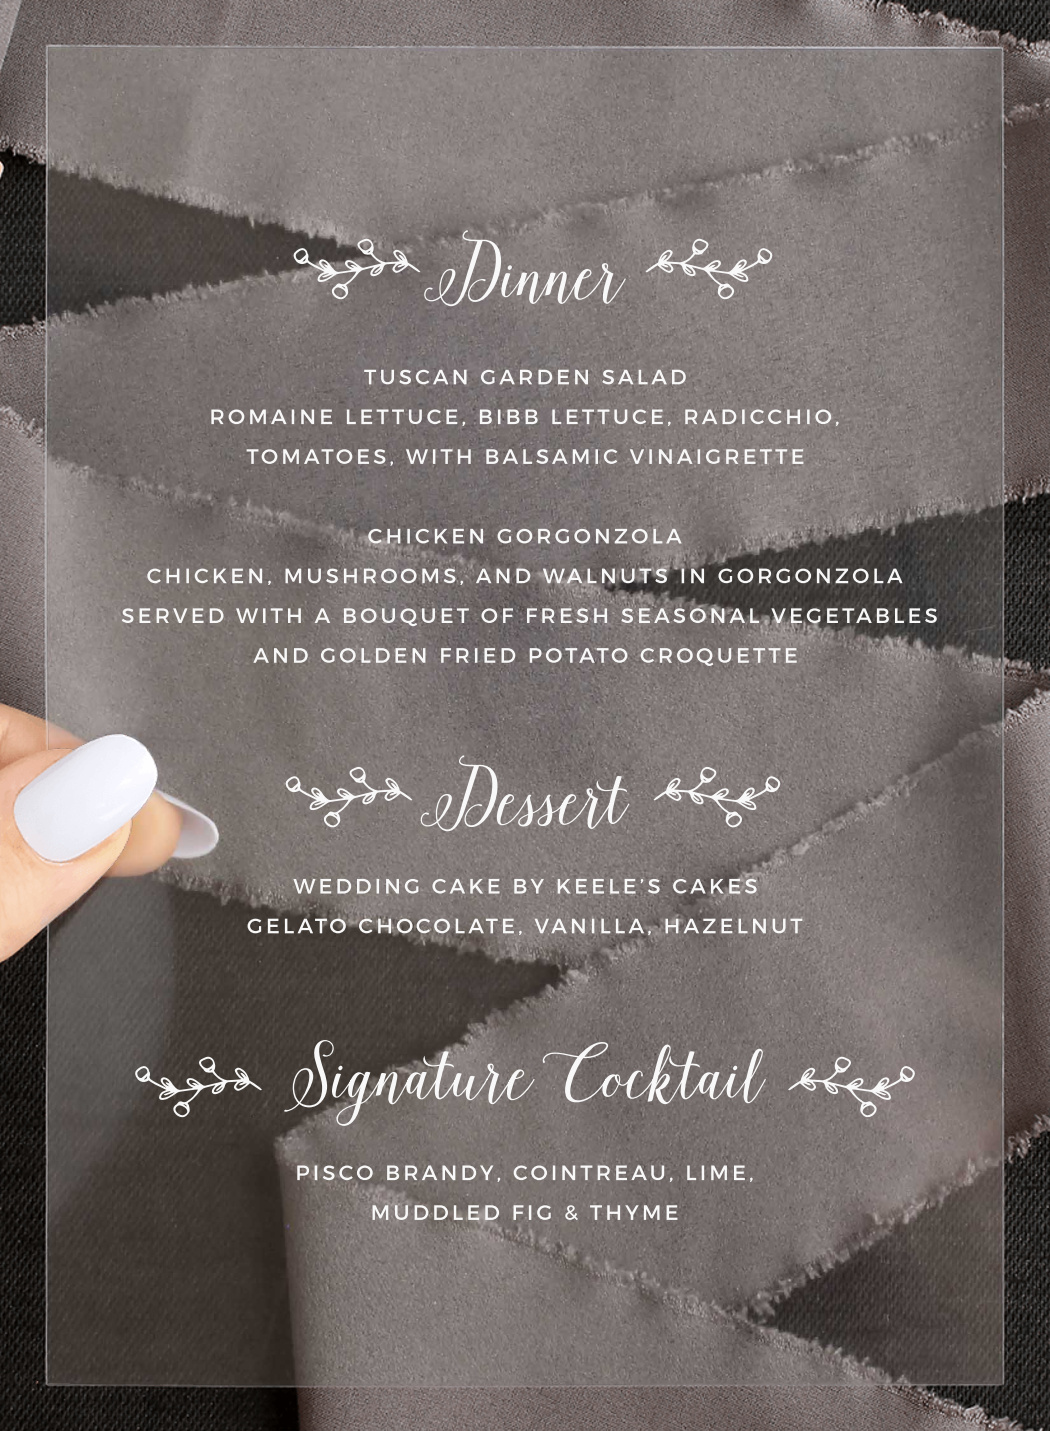 Dinner
TUSCAN GARDEN SALAD
ROMAINE LETTUCE, BIBB LETTUCE, RADICCHIO,
TOMATOES, WITH BALSAMIC VINAIGRETTE
CHICKEN GORGONZOLA
CHICKEN, MUSHROOMS, AND WALNUTS IN GORGONZOLA
SERVED WITH A BOUQUET OF FRESH SEASONAL VEGETABLES
AND GOLDEN FRIED POTATO CROQUETTE
Dessert
WEDDING CAKE BY KEELE'S CAKES
GELATO CHOCOLATE, VANILLA, HAZELNUT
Signature Cocktail
PISCO BRANDY, COINTREAU, LIME,
MUDDLED FIG & THYME